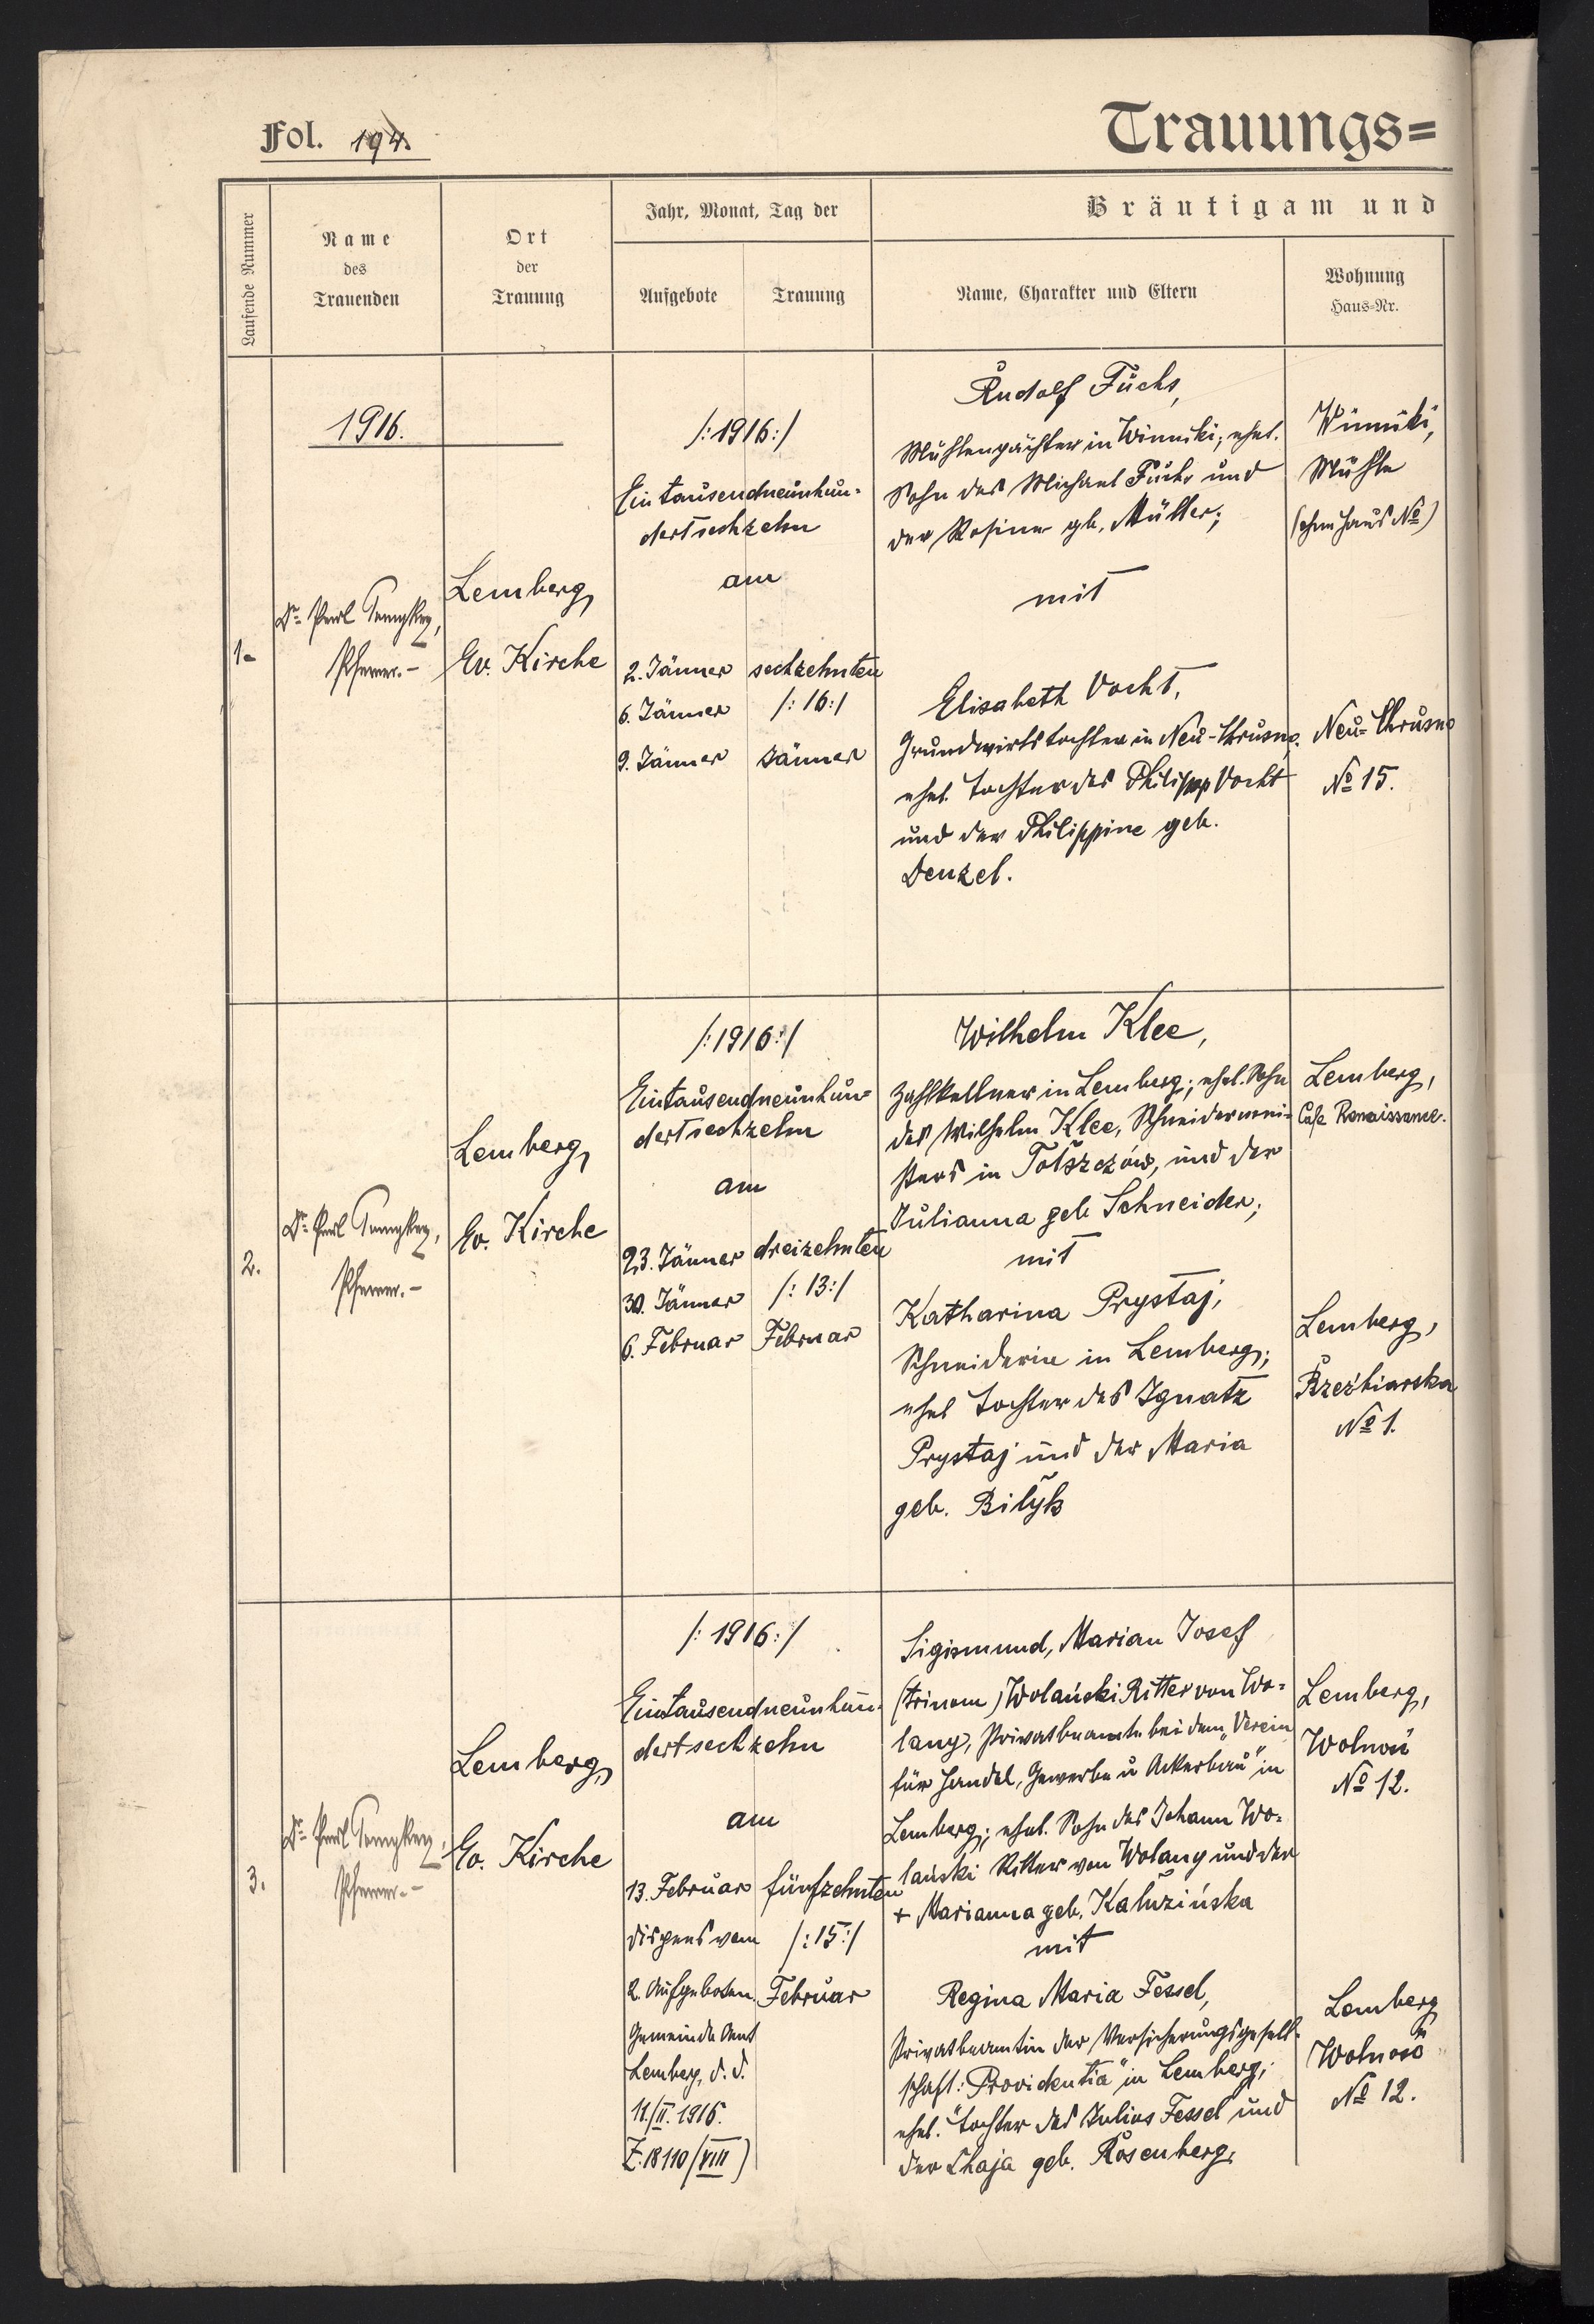 Fol. 194.
Trauungs=
Laufende Nummer
Name
des
Trauenden
Ort
der
Trauung
Jahr, Monat, Tag der
Aufgebote
Trauung
Bräutigam und
Name, Charakter und Eltern
Wohnung
Haus=Nr.
1916.
1.
Pfarrer.-
Lemberg,
Ev. Kirche
/:1916:/
Eintausendneunhun-
dertsechzehn
am
2. Jänner
6. Jänner
9. Jänner
sechzehnten
/:16:/
Jänner
Rudolf Fuchs,
Mühlenpächter in Winniki; ehel.
Sohn des Michael Fuchs und
der Rosina gb. Müller;
mit
Elisabeth Vocht,
Grundwirtstochter in Neu-Chrusno.
ehel. Tochter des Philipp Vocht
und der Philippine geb.
Denzel.
Winniki,
Mühle
(ohne Haus No)
Neu-Chrusno
No 15.
2.
Pfarrer.-
Lemberg,
Ev. Kirche
/:1916:/
Eintausendneunhun=
dertsechzehn
am
23. Jänner
30. Jänner
6. Februar
dreizehnten
/:13:/
Februar
Wilhelm Klee,
Zahlkellner in Lemberg; ehel. Sohn
des Wilhelm Klee, Schneidermei-
sters in Tołszczów, und der
Julianna geb Schneider;
mit
Katharina Prystaj,
Schneiderin in Lemberg;
ehel Tochter des Ignatz
Prystaj und der Maria
geb. Bilyk
Lemberg,
Cafe Renaissance.
Lemberg,
No 1.
3.
Pfarrer.-
Lemberg,
Ev. Kirche
/:1916:/
Eintausendneunhun-
dertsechzehn
am
13. Februar
dispens vom
2. Aufgeboten.
Gemeinde Amt
Lemberg, d. d.
11./II. 1916.
Z. 18110/VIII)
fünfzehnten
/:15:/
Februar
Sigismund, Marian Josef
(trinom) Wolański Ritter von Wo-
lany, Privatbeamte bei dem "Verein
für Handel, Gewerbe u Ackerbau" in
Lemberg; ehel. Sohn des Johann Wo-
lański Ritter von Wolany und der
+ Marianna geb. Kałuzińska
mit
Regina Maria Fessel,
Privatbeamtin der Versicherungsgesell-
schaft: "Providentia" in Lemberg;
ehel. Tochter des Julius Fessel und
der Chaja geb. Rosenberg,
Lemberg,
No 12.
Lemberg
No 12.